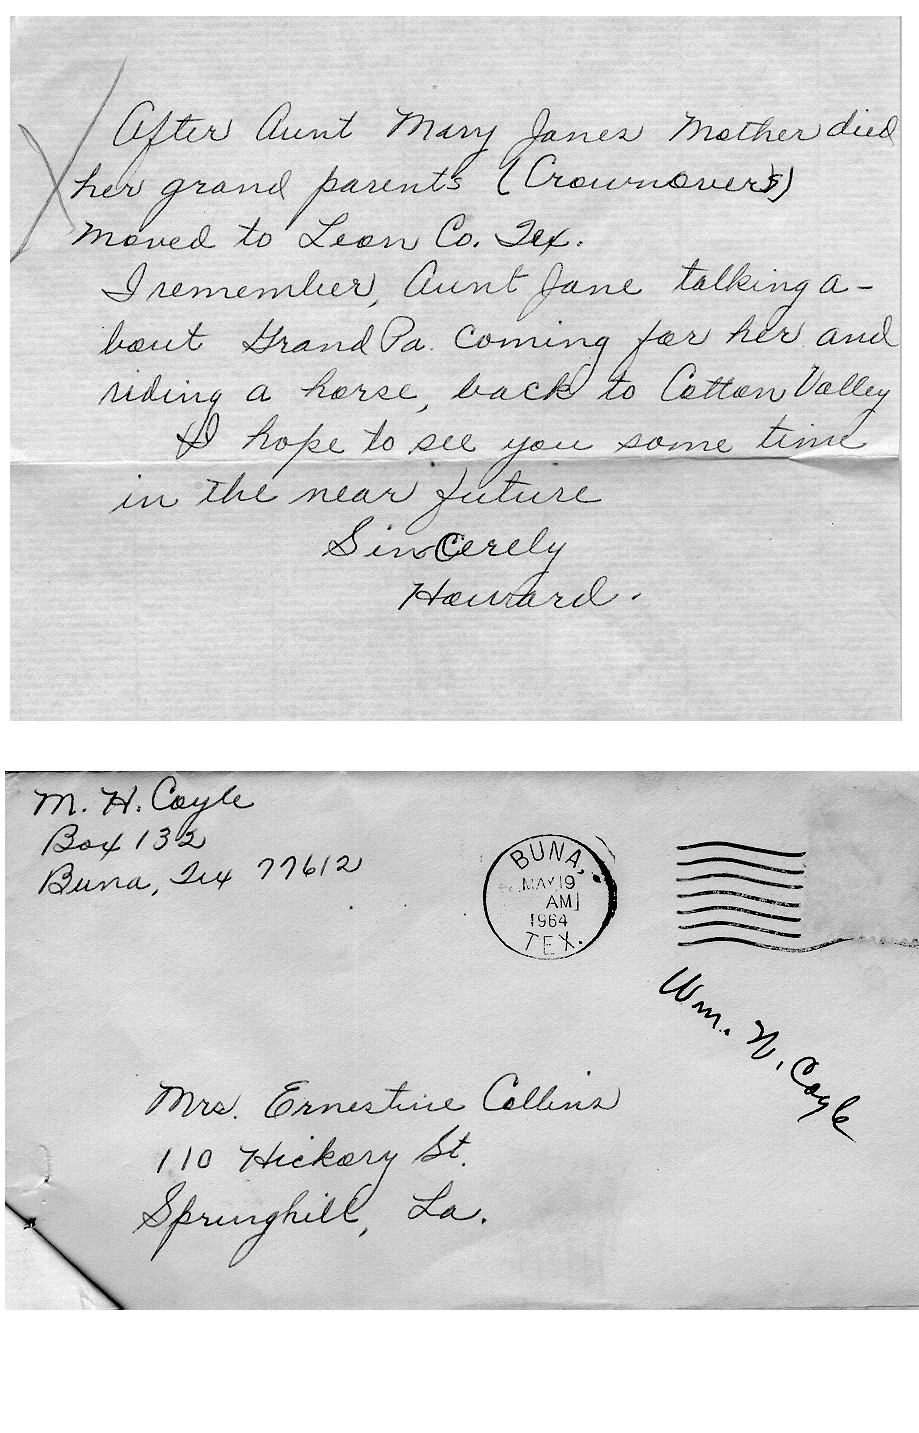 After Aunt Mary Janes Mother died
her grand parents (Crownovers)
moved to Leon Co. Tex.
I remember, Aunt Jane talking a-
bout Grand Pa. coming for her and
riding a horse, back to Cotton Valley
I hope to see you some time
in the near future
Sincerely
Howard.
M. H. Coyle
Box 132
Buna, Tex 77612
BUNA,
MAY 19
AM
1964
TEX.
Wm. H. Coyle
Mrs. Ernestine Collins
110 Hickory St.
Springhill, La.